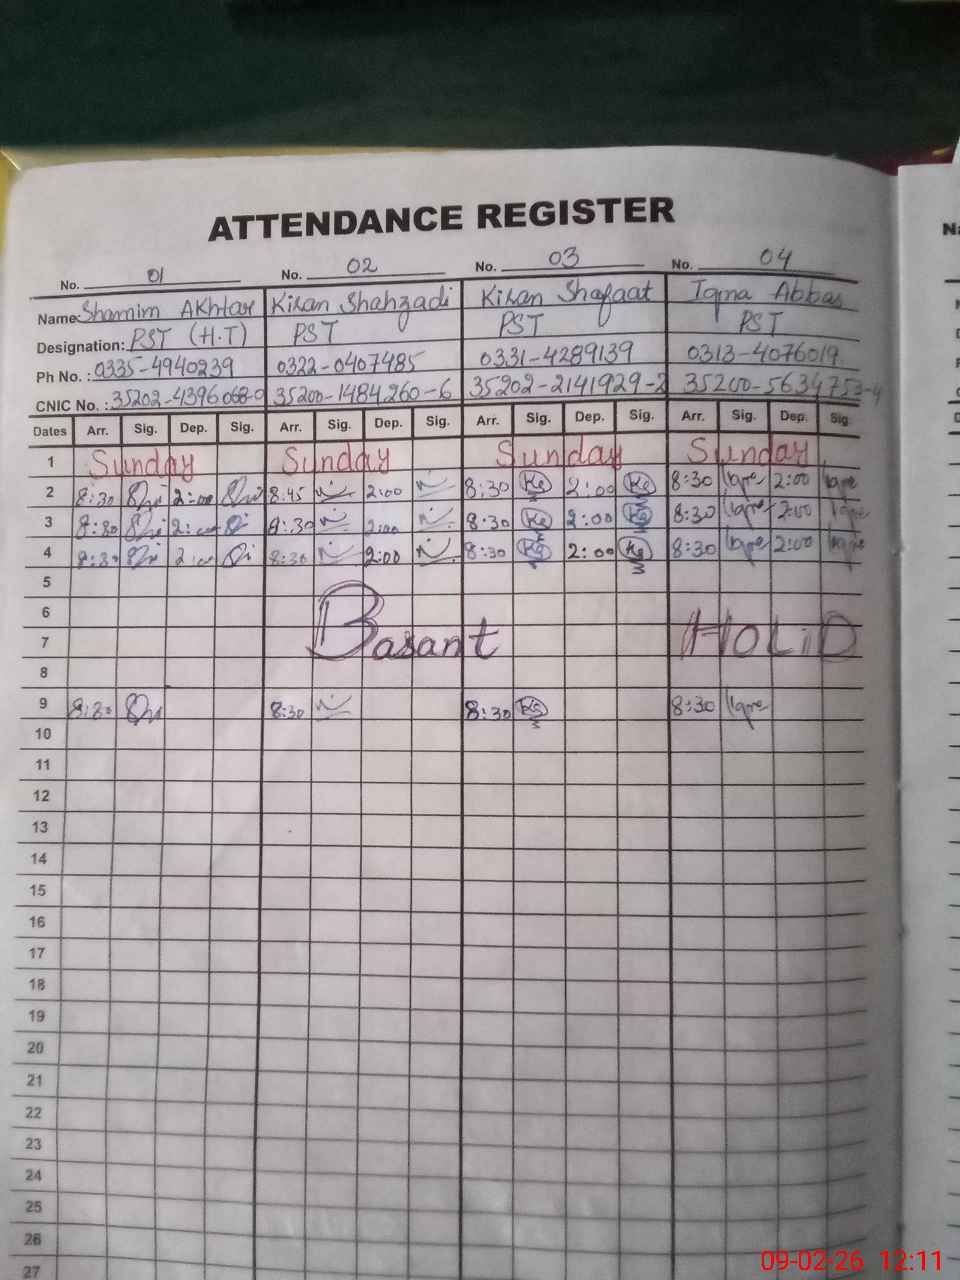 ATTENDANCE REGISTER
No. 01 No. 02 No. 03 No. 04
Name: Shamim Akhtar Kiran Shahzadi Kiran Shafaat Iqra Abbas
Designation: PST (H.T) PST PST PST
Ph No. : 0335-4940239 0322-0407485 0331-4289139 0313-4076019
CNIC No. : 35202-4396068-0 35200-1484260-6 35202-2141929-2 35200-5634753-4
Dates Arr. Sig. Dep. Sig. Arr. Sig. Dep. Sig. Arr. Sig. Dep. Sig. Arr. Sig. Dep. Sig.
1 Sunday Sunday Sunday Sunday
2 8:30 2:00 8:45 2:00 8:30 2:00 8:30 Iqra 2:00 Iqra
3 8:30 2:00 8:30 2:00 8:30 2:00 8:30 Iqra 2:00 Iqra
4 8:30 2:00 8:30 2:00 8:30 2:00 8:30 Iqra 2:00 Iqra
5
6
7 Basant HOLiD
8
9 8:30 8:30 8:30 8:30 Iqra
10
11
12
13
14
15
16
17
18
19
20
21
22
23
24
25
26
27
Na
09-02-26 12:11